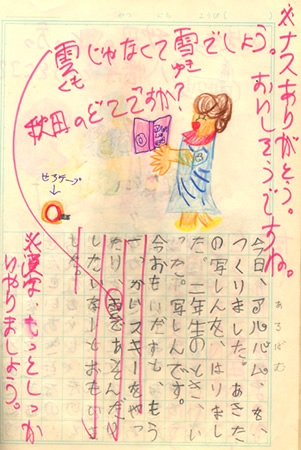 ※ナスありがとう。おいしそうですね。
雲じゃなくて雪でしょう。
くも
ゆき
秋田のどこですか?
せろテープ
あるばむ
今日、アルバムを、
つくりました。あきた
の写しんを、はりまし
た。二年生のとき、い
った。写しんです。
今おもいだすと、もう
一、かいスキーをやっ
たり雲をあそんだり
したいなーとおもいま
した。
※漢字、もっとしっか
りやりましょう。